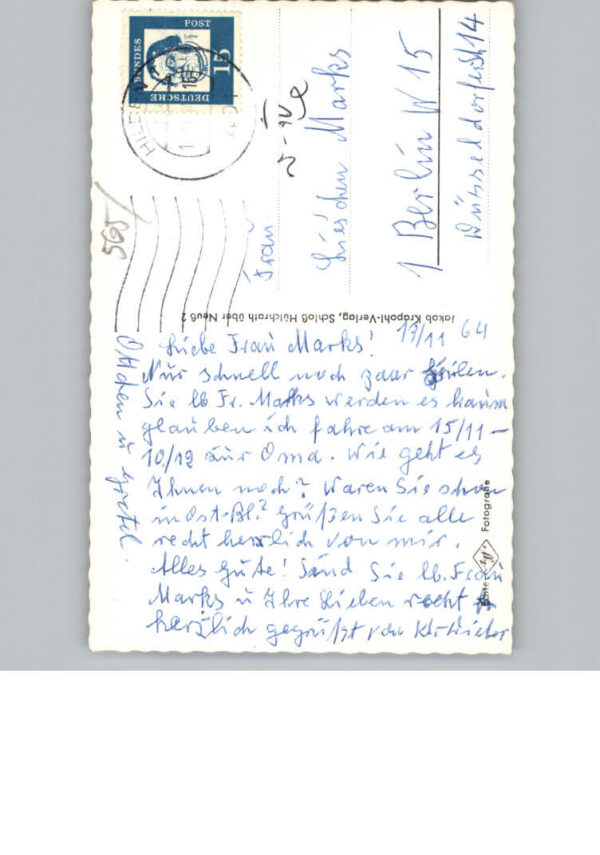 DEUTSCHE
BUNDES
POST
15
Luther
Frau
Lieschen Marks
1 Berlin W 15
565
Jakob Krapohl-Verlag, Schloß Hülchrath über Neuß 2
17/11 64
Liebe Frau Marks!
Nur schnell noch paar Zeilen.
Sie lb Fr. Marks werden es kaum
glauben ich fahre am 15/11 -
10/12 zur Oma. Wie geht es
Ihnen noch? Waren Sie schon
in Ost-Bl.? Grüßen Sie alle
recht herzlich von mir.
Alles Gute! Sind Sie lb. Frau
Marks u Ihre Lieben recht
herzlich gegrüßt von
Fotografie